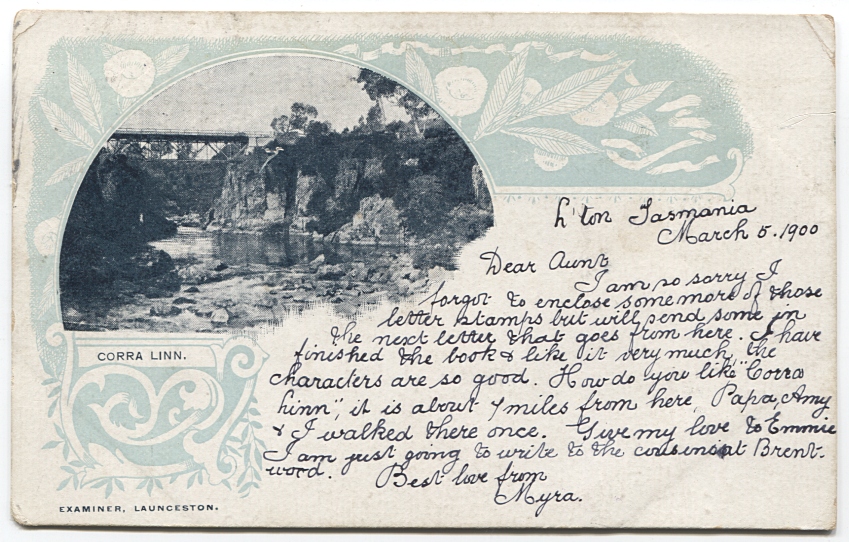 L'ton Tasmania
March 5. 1900
Dear Aunt
I am so sorry I
forgot to enclose some more of those
letter stamps but will send some in
the next letter that goes from here. I have
finished the book & like it very much, the
characters are so good. How do you like "Corra
Linn", it is about 7 miles from here, Papa, Amy
& I walked there once. Give my love to Emmie
I am just going to write to the cousins at Brent-
wood. Best love from
Myra.
CORRA LINN.
EXAMINER, LAUNCESTON.